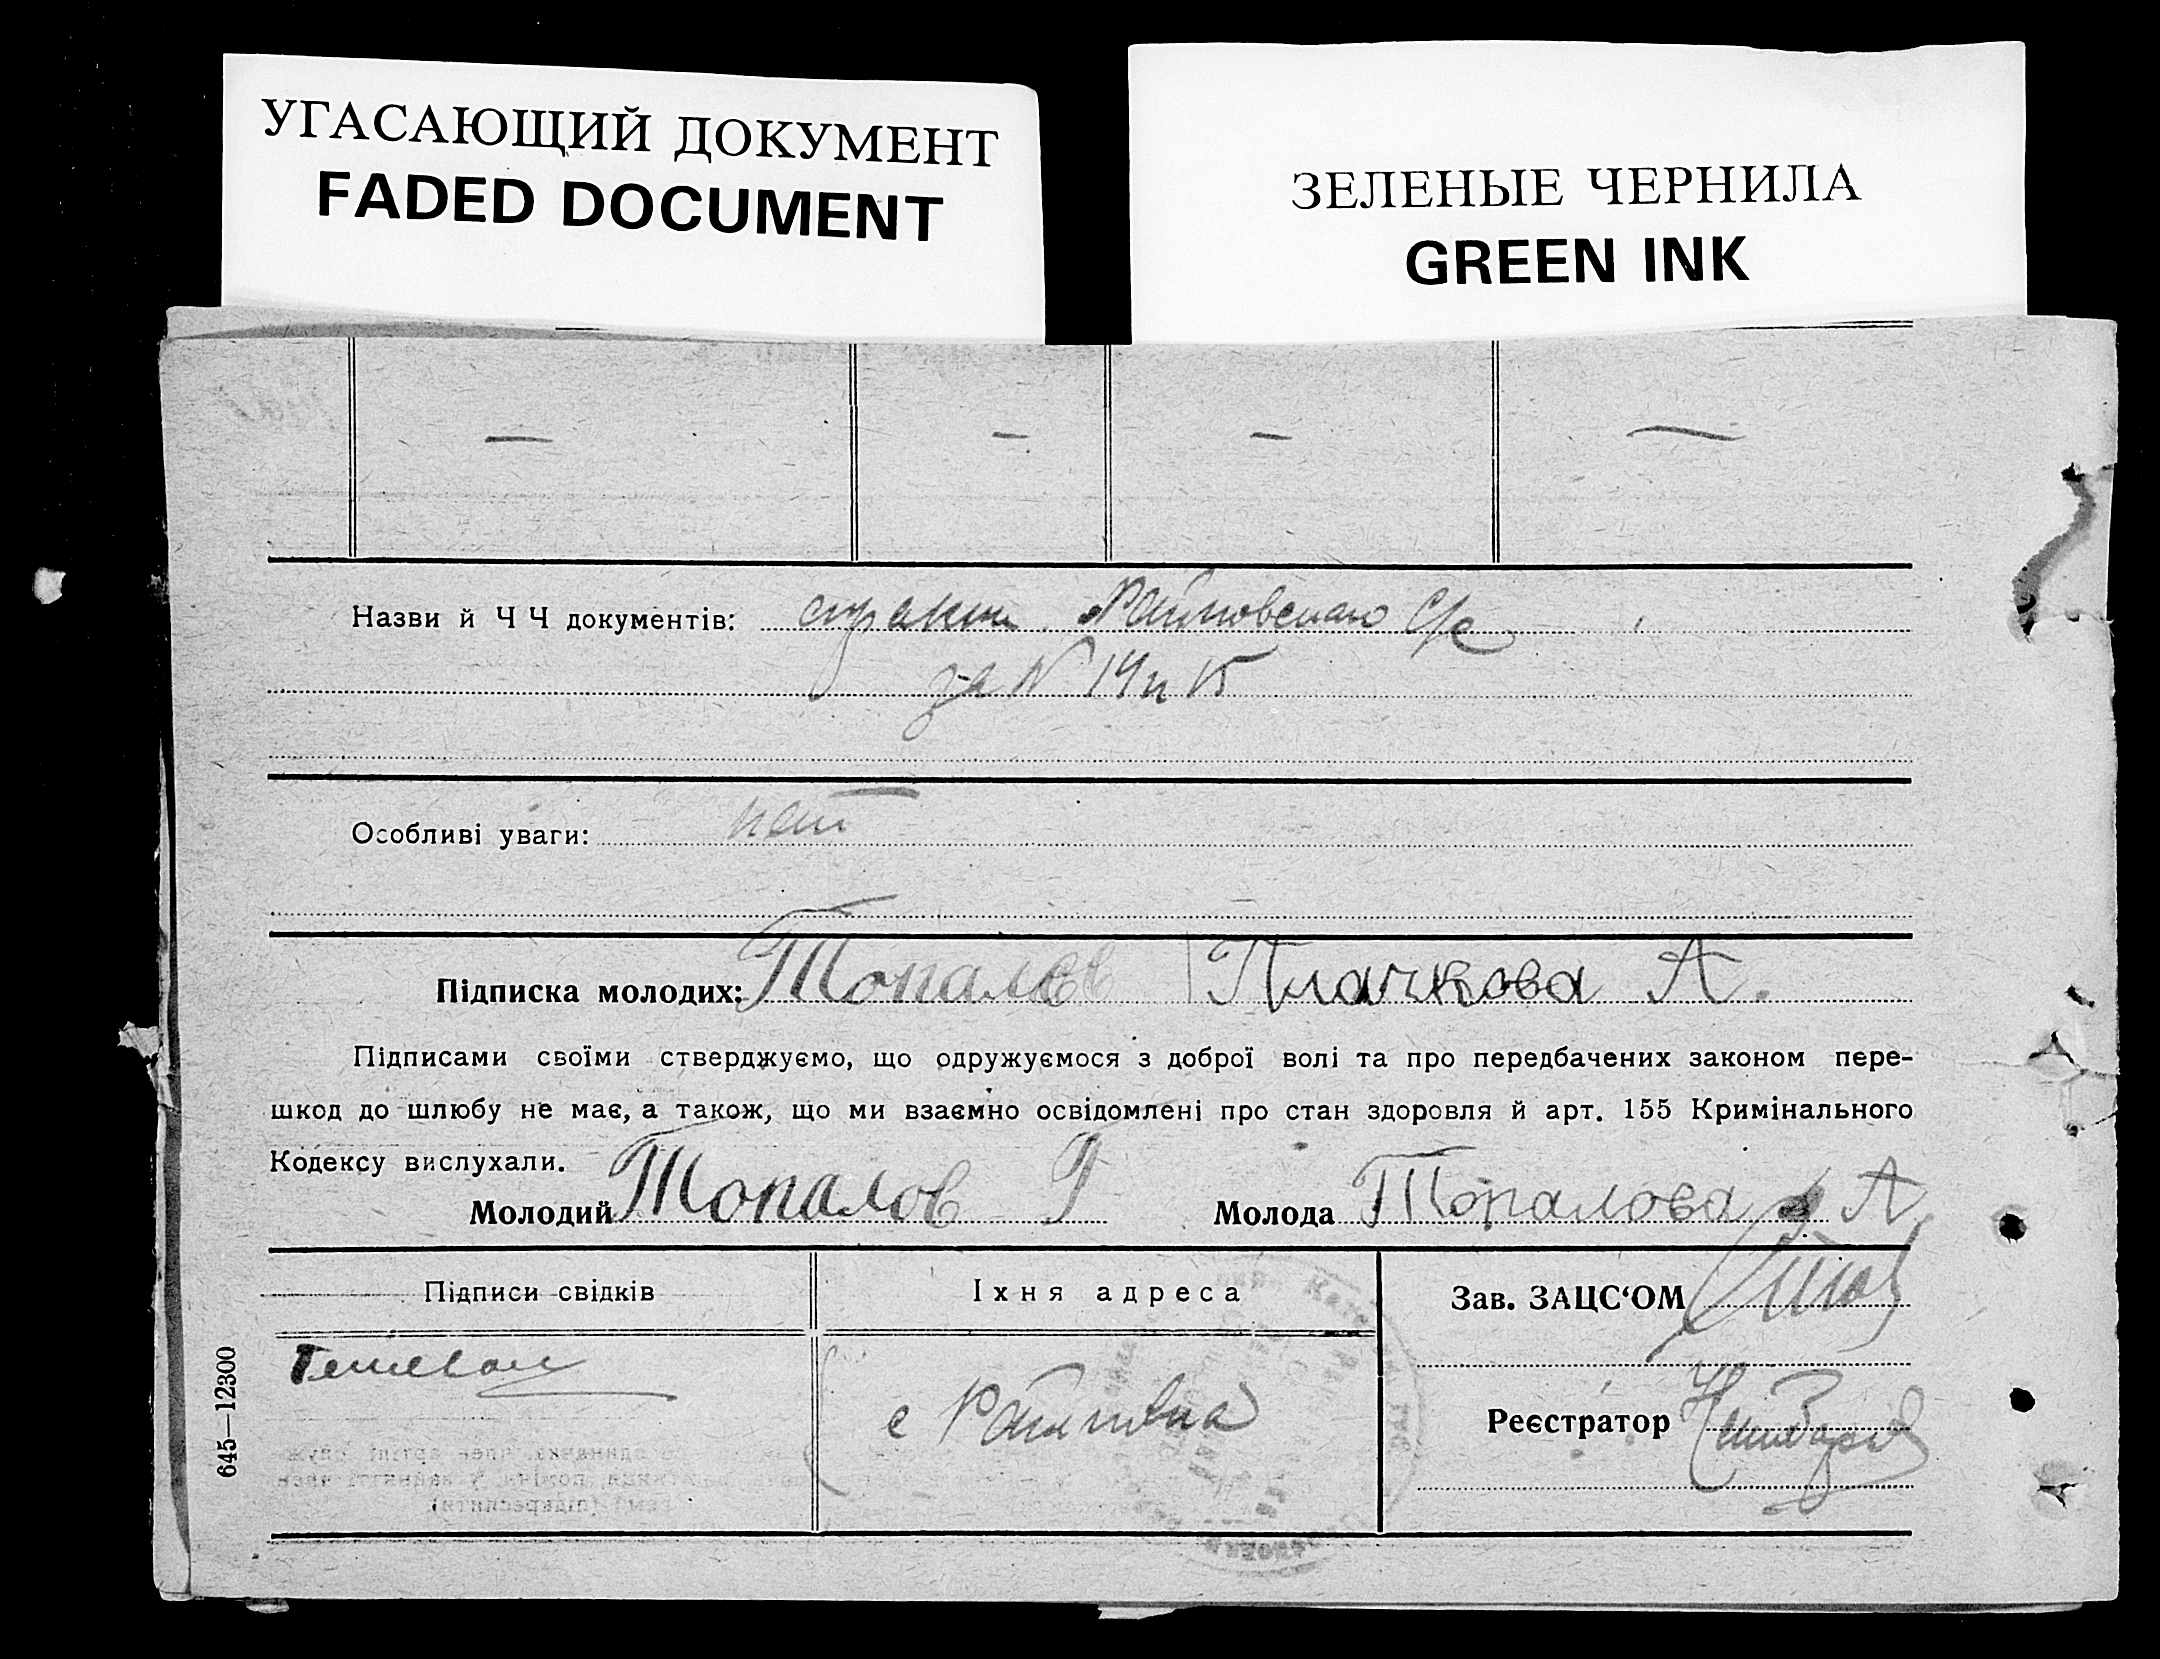 УГАСАЮЩИЙ ДОКУМЕНТ
FADED DOCUMENT
ЗЕЛЕНЫЕ ЧЕРНИЛА
GREEN INK
— — — —
Назви й Ч Ч документів: С/с
за № 14 и 15
Особливі уваги: нет
Підписка молодих: Топалов Плачкова А.
Підписами своїми стверджуємо, що одружуємося з доброї волі та про передбачених законом пере-
шкод до шлюбу не має, а також, що ми взаємно освідомлені про стан здоровля й арт. 155 Кримінального
Кодексу вислухали.
Молодий Топалов Г Молода Топалова А
Підписи свідків Їхня адреса Зав. ЗАЦС‘ОМ
с
Реєстратор
645—12300